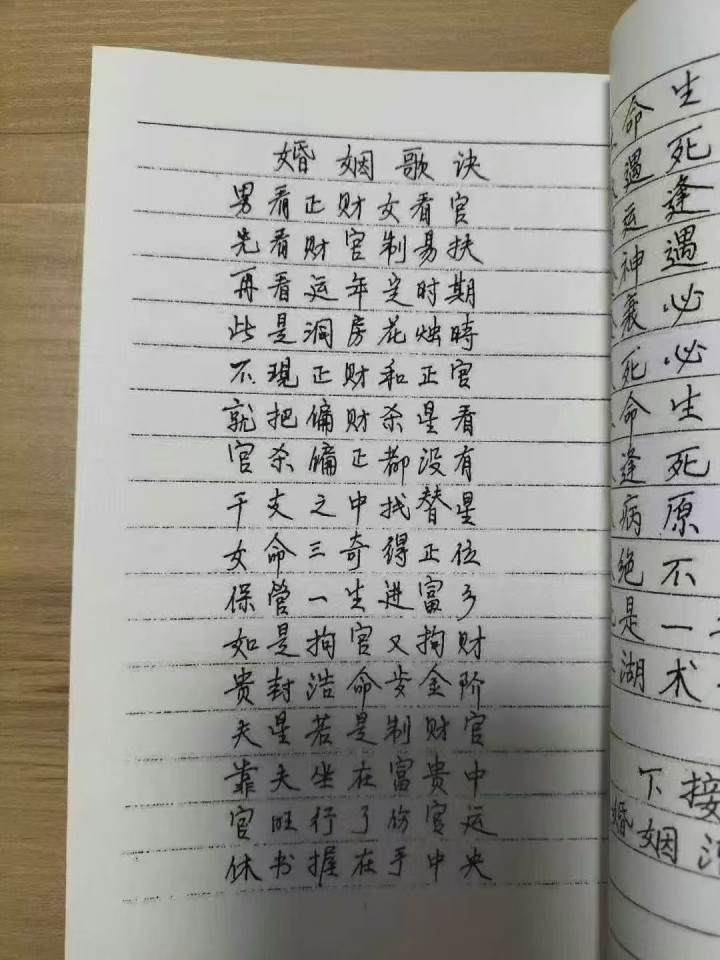 婚姻歌诀
男看正财女看官
先看财官制易扶
再看运年定时期
此是洞房花烛時
不現正财和正官
就把偏财杀星看
官杀偏正都没有
干支之中找替星
女命三奇得正位
保管一生进富乡
如是拘官又拘财
贵封浩命步金阶
夫星若是制财官
靠夫坐在富贵中
官旺行了伤官运
休书握在手中央
命生
遇死
运逢
神遇
衰必
死必
命生
逢死
病原
绝不
是一
湖术
下接
婚姻